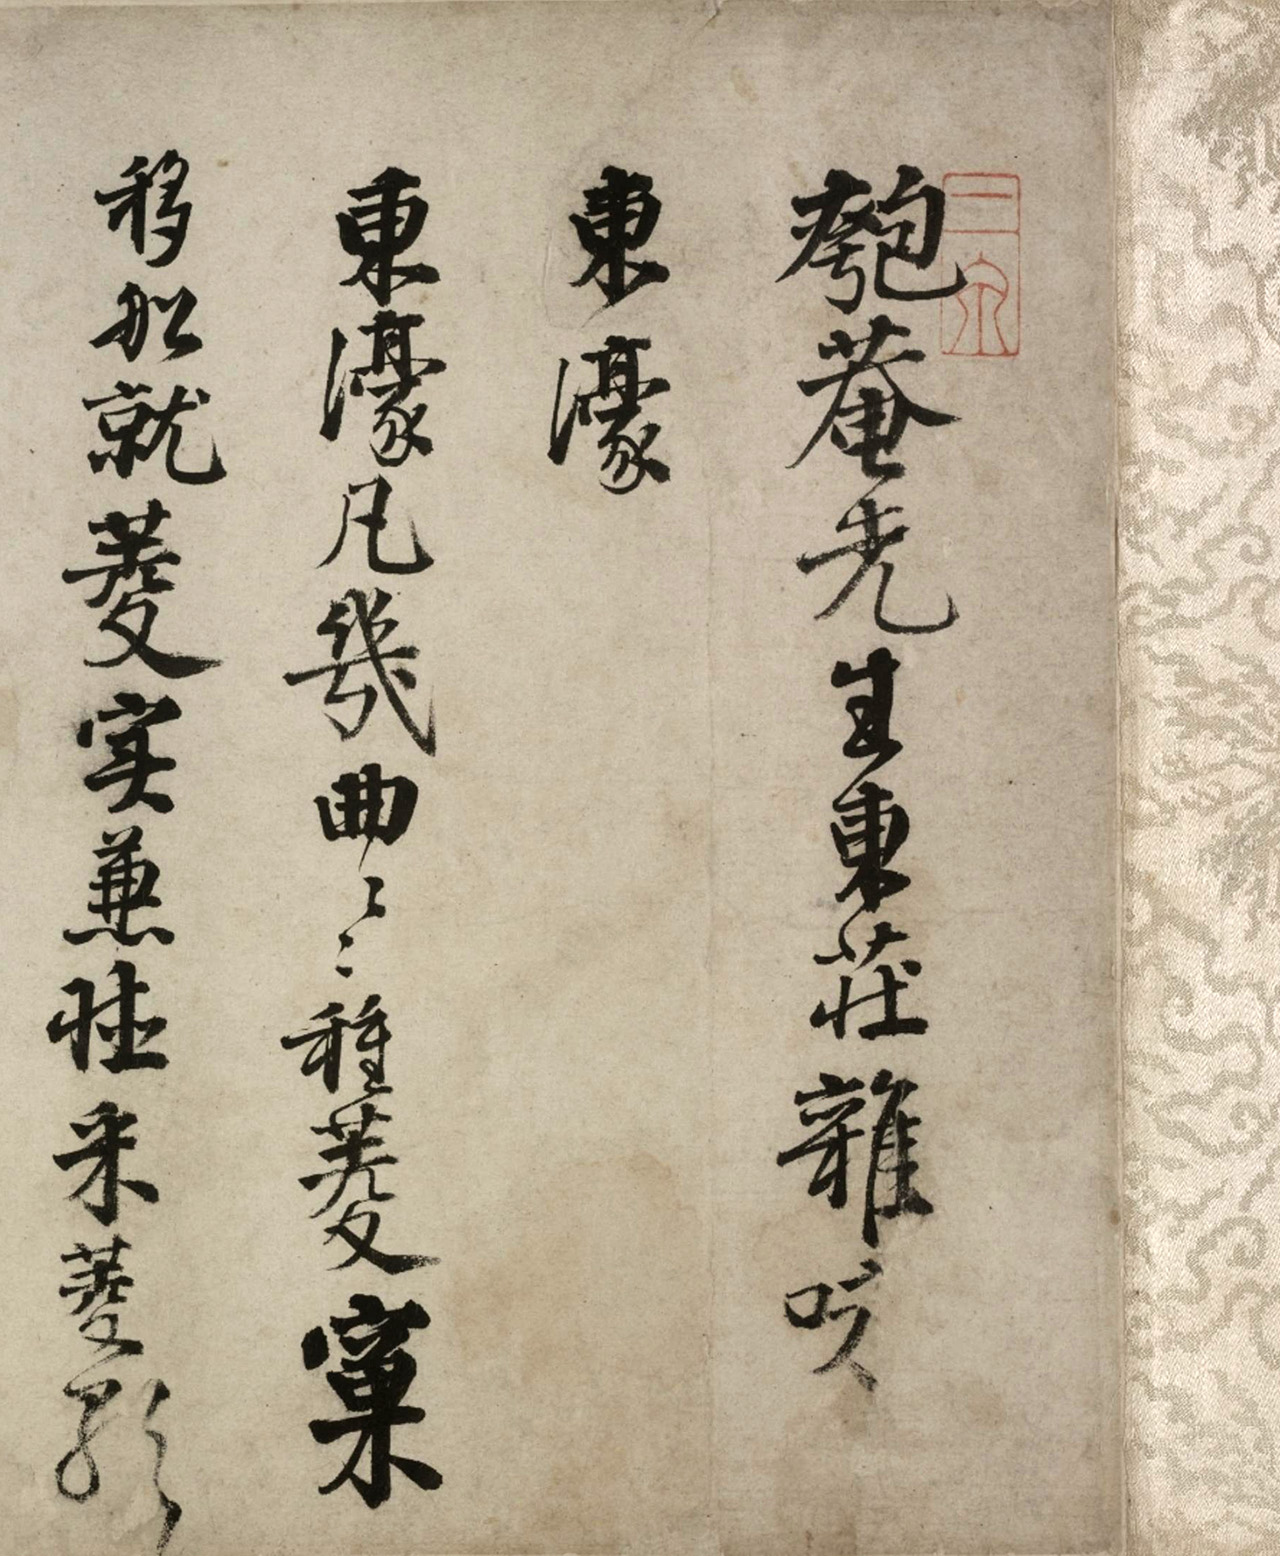 匏菴先生東莊雜咏
東濠
東濠凡幾曲〻〻種菱窠
移船就菱實兼聽采菱歌